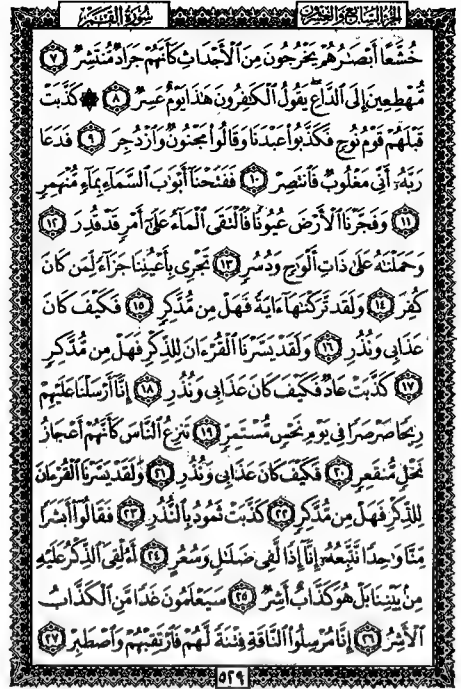 سُورَةُ القَمَر الجزء السابع والعشرون
خُشَّعًا أَبْصَٰرُهُمْ يَخْرُجُونَ مِنَ ٱلْأَجْدَاثِ كَأَنَّهُمْ جَرَادٌ مُّنتَشِرٌ ٧
مُّهْطِعِينَ إِلَى ٱلدَّاعِ يَقُولُ ٱلْكَٰفِرُونَ هَٰذَا يَوْمٌ عَسِرٌ ٨ ۞ كَذَّبَتْ
قَبْلَهُمْ قَوْمُ نُوحٍ فَكَذَّبُوا۟ عَبْدَنَا وَقَالُوا۟ مَجْنُونٌ وَٱزْدُجِرَ ٩ فَدَعَا
رَبَّهُۥٓ أَنِّى مَغْلُوبٌ فَٱنتَصِرْ ١٠ فَفَتَحْنَآ أَبْوَٰبَ ٱلسَّمَآءِ بِمَآءٍ مُّنْهَمِرٍ
١١ وَفَجَّرْنَا ٱلْأَرْضَ عُيُونًا فَٱلْتَقَى ٱلْمَآءُ عَلَىٰٓ أَمْرٍ قَدْ قُدِرَ ١٢
وَحَمَلْنَٰهُ عَلَىٰ ذَاتِ أَلْوَٰحٍ وَدُسُرٍ ١٣ تَجْرِى بِأَعْيُنِنَا جَزَآءً لِّمَن كَانَ
كُفِرَ ١٤ وَلَقَد تَّرَكْنَٰهَآ ءَايَةً فَهَلْ مِن مُّدَّكِرٍ ١٥ فَكَيْفَ كَانَ
عَذَابِى وَنُذُرِ ١٦ وَلَقَدْ يَسَّرْنَا ٱلْقُرْءَانَ لِلذِّكْرِ فَهَلْ مِن مُّدَّكِرٍ
١٧ كَذَّبَتْ عَادٌ فَكَيْفَ كَانَ عَذَابِى وَنُذُرِ ١٨ إِنَّآ أَرْسَلْنَا عَلَيْهِمْ
رِيحًا صَرْصَرًا فِى يَوْمِ نَحْسٍ مُّسْتَمِرٍّ ١٩ تَنزِعُ ٱلنَّاسَ كَأَنَّهُمْ أَعْجَازُ
نَخْلٍ مُّنقَعِرٍ ٢٠ فَكَيْفَ كَانَ عَذَابِى وَنُذُرِ ٢١ وَلَقَدْ يَسَّرْنَا ٱلْقُرْءَانَ
لِلذِّكْرِ فَهَلْ مِن مُّدَّكِرٍ ٢٢ كَذَّبَتْ ثَمُودُ بِٱلنُّذُرِ ٢٣ فَقَالُوٓا۟ أَبَشَرًا
مِّنَّا وَٰحِدًا نَّتَّبِعُهُۥٓ إِنَّآ إِذًا لَّفِى ضَلَٰلٍ وَسُعُرٍ ٢٤ أَءُلْقِىَ ٱلذِّكْرُ عَلَيْهِ
مِنۢ بَيْنِنَا بَلْ هُوَ كَذَّابٌ أَشِرٌ ٢٥ سَيَعْلَمُونَ غَدًا مَّنِ ٱلْكَذَّابُ
ٱلْأَشِرُ ٢٦ إِنَّا مُرْسِلُوا۟ ٱلنَّاقَةِ فِتْنَةً لَّهُمْ فَٱرْتَقِبْهُمْ وَٱصْطَبِرْ ٢٧
٥٢٩